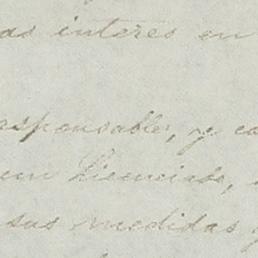 as interes en
responsables, y co
un Licenciado,
sus medidas y